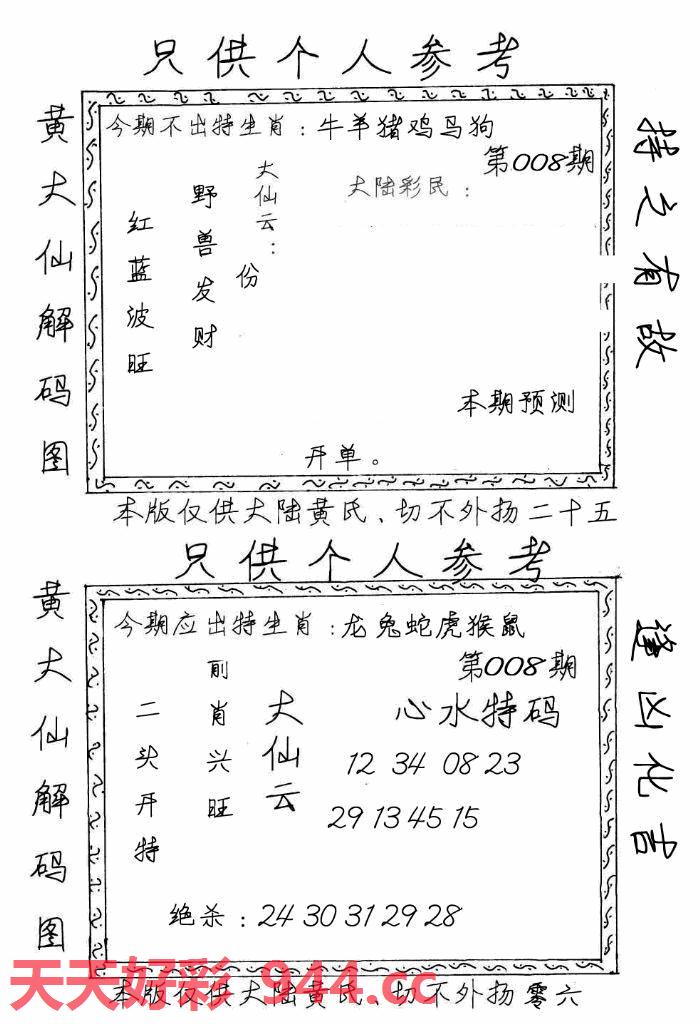 只供个人参考
黄大仙解码图
今期不出特生肖：牛羊猪鸡马狗
第008期
大陆彩民：
大仙云：
份
野兽发财
红蓝波旺
本期预测
开单。
持之有故
本版仅供大陆黄氏、切不外扬二十五
只供个人参考
黄大仙解码图
今期应出特生肖：龙兔蛇虎猴鼠
第008期
心水特码
12 34 08 23
29 13 45 15
大仙云
前肖兴旺
二头开特
绝杀：24 30 31 29 28
逢凶化吉
天天好彩 944.cc
本版仅供大陆黄氏、切不外扬零六